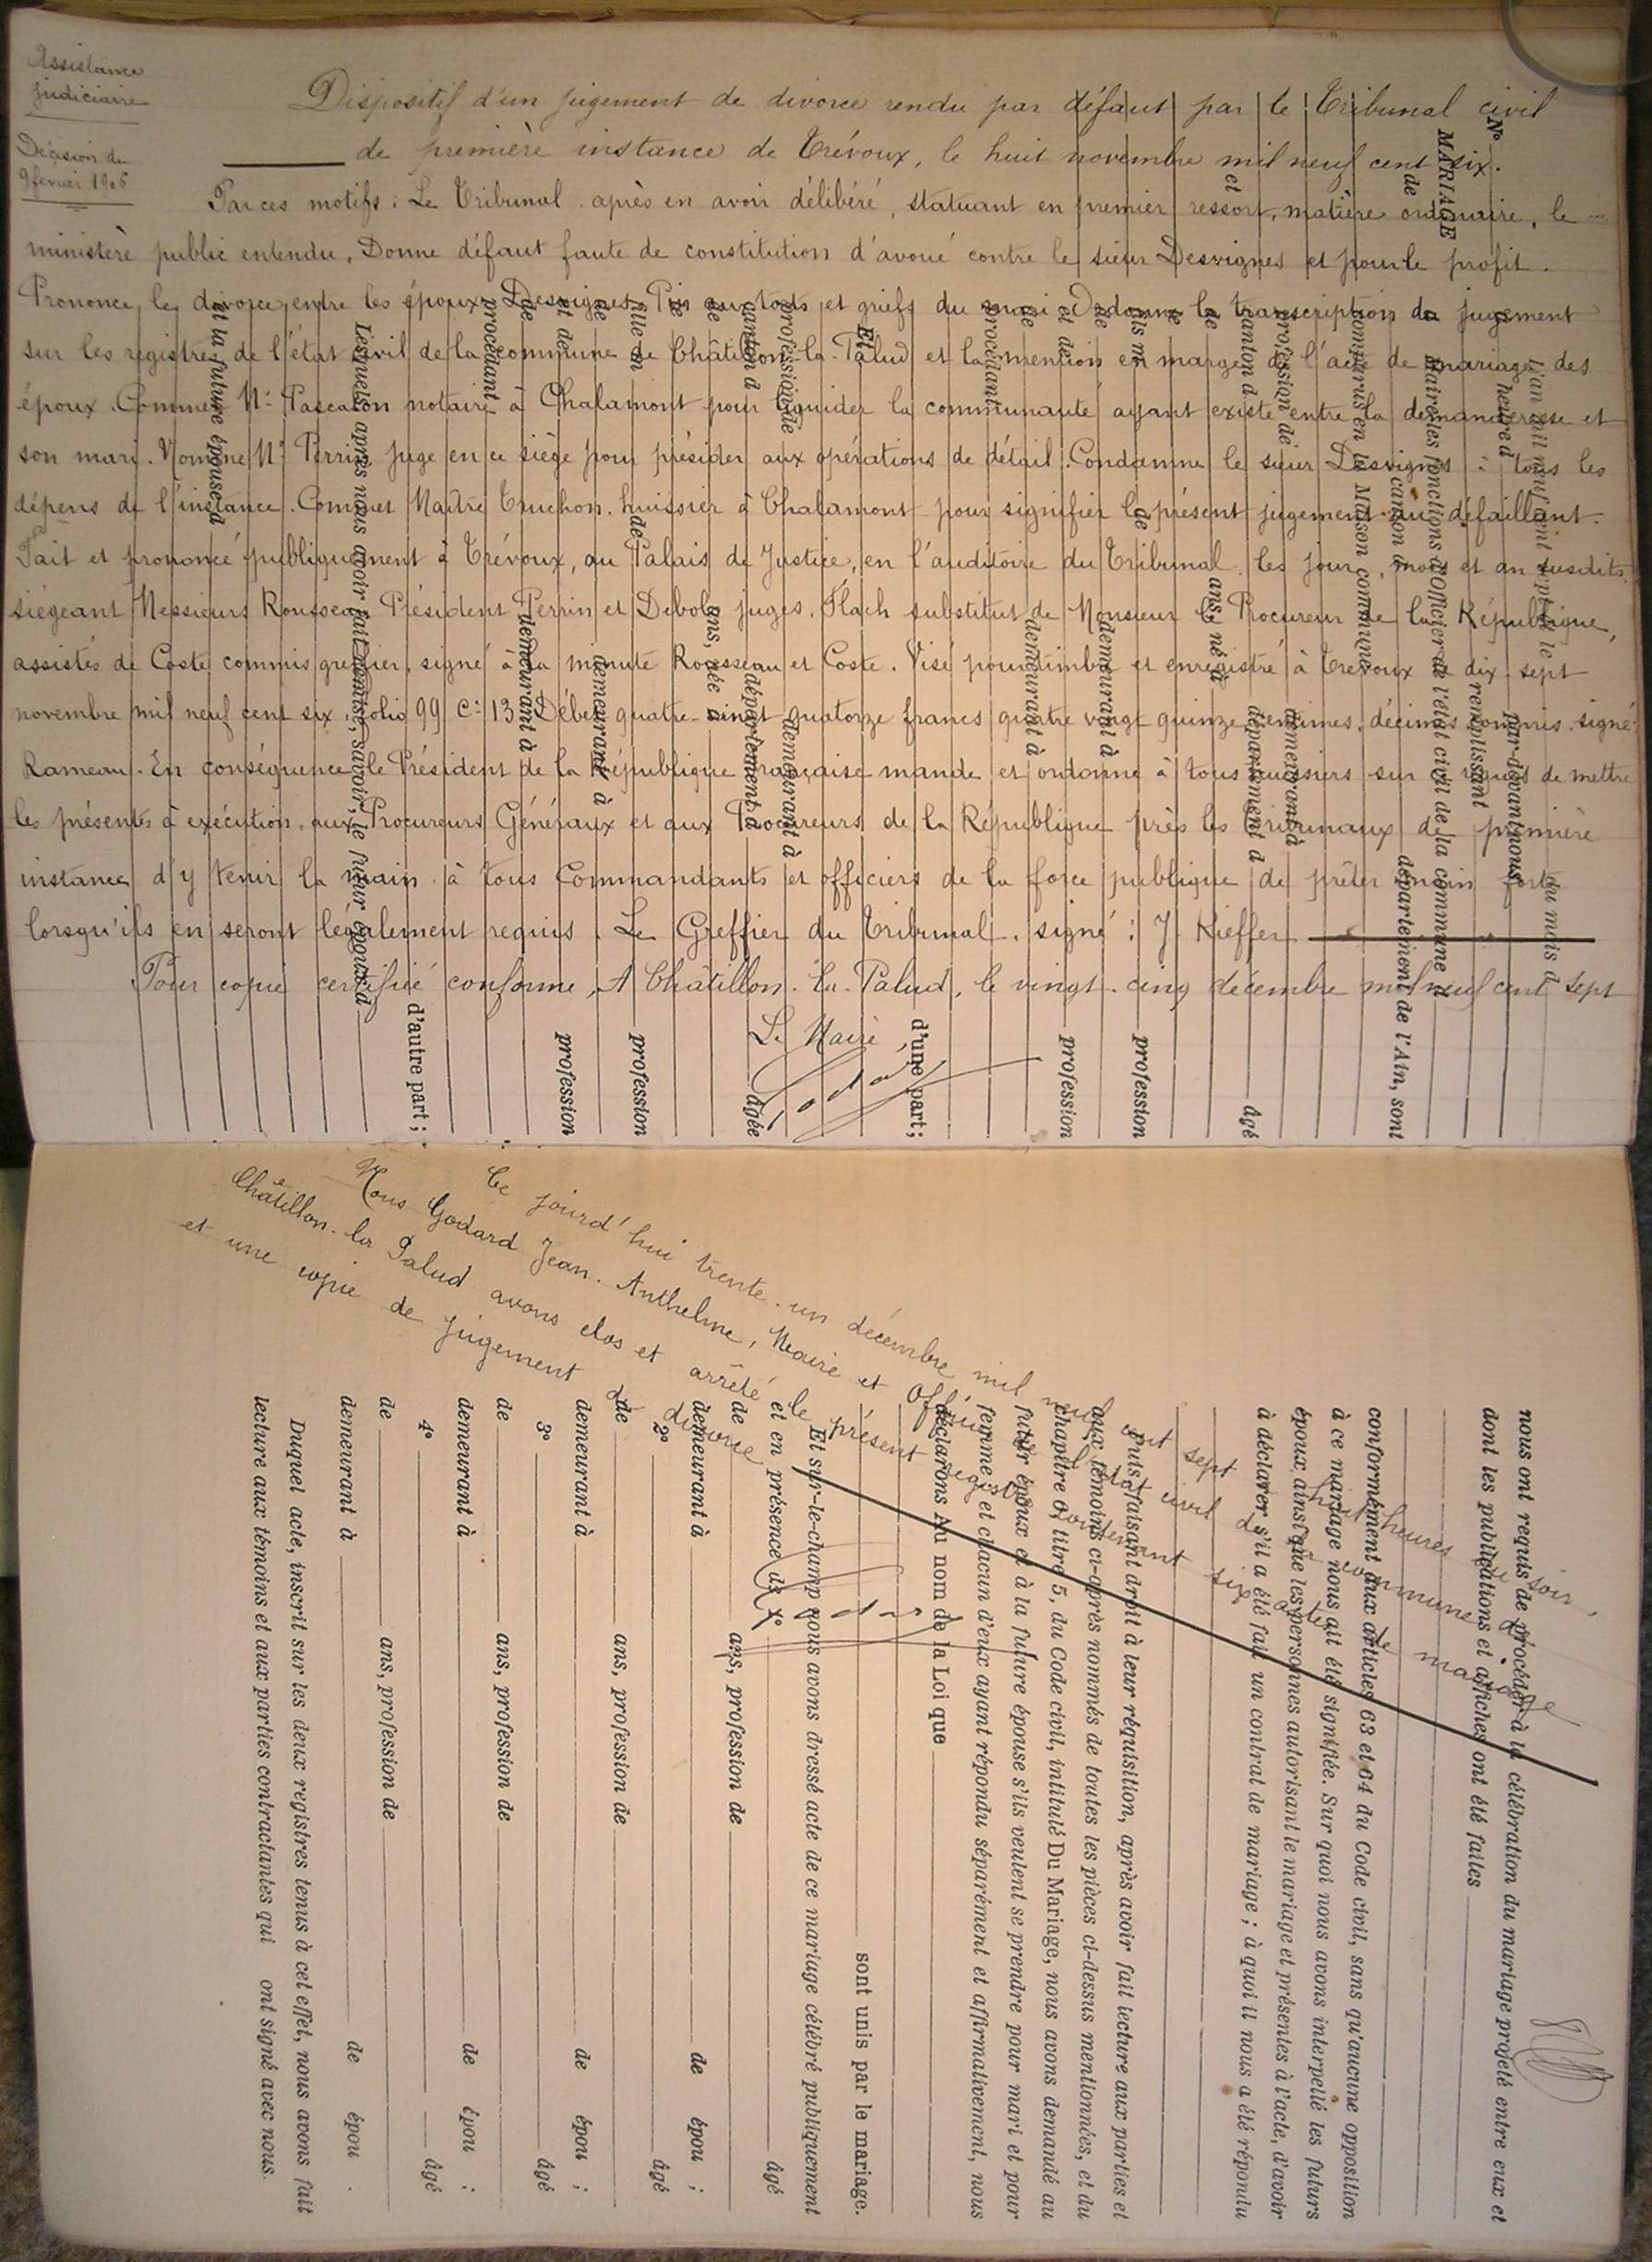 Assistance
judiciaire
Décision du
9 février 1906
Dispositif d'un jugement de divorce rendu par défaut par le Tribunal civil
de première instance de Trévoux, le huit novembre mil neuf cent six.
Par ces motifs : Le Tribunal après en avoir délibéré, statuant en premier ressort, matière ordinaire, le
ministère public entendu, Donne défaut faute de constitution d'avoué contre le sieur Desvignes et pour le profit.
Prononce le divorce entre les époux Desvignes Pin aux torts et griefs du mari Ordonne la transcription du jugement
sur les registres de l'état civil de la commune de Châtillon-la-Palud et la mention en marge de l'acte de mariage des
époux. Commet Me Pascalon notaire à Chalamont pour liquider la communauté ayant existé entre la demanderesse et
son mari. Nomme Mr Perrin juge en ce siège pour présider aux opérations de détail. Condamne le sieur Desvignes à tous les
dépens de l'instance. Commet Maître Truchon, huissier à Chalamont pour signifier le présent jugement au défaillant.
Fait et prononcé publiquement à Trévoux, au Palais de Justice, en l'auditoire du Tribunal les jour, mois et an susdits
siégeant Messieurs Rousseau Président Perrin et Debole juges. Flach substitut de Monsieur le Procureur de la République,
assistés de Coste commis greffier, signé à la minute Rousseau et Coste. Visé pour timbre et enregistré à Trévoux le dix-sept
novembre mil neuf cent six, folio 99 Ce 13 Débet quatre-vingt quatorze francs quatre vingt quinze centimes, décimes compris signé :
Rameau. En conséquence le Président de la République française mande et ordonne à tous huissiers sur ce requis de mettre
les présentes à exécution, aux Procureurs Généraux et aux Procureurs de la République près les Tribunaux de première
instance d'y tenir la main à tous Commandants et officiers de la force publique de prêter main forte
lorsqu'ils en seront légalement requis. Le Greffier du Tribunal, signé : J. Kieffer
Pour copie certifiée conforme, A Châtillon-la-Palud, le vingt-cinq décembre mil neuf cent sept
Le Maire,
Godard
No
MARIAGE
de
et
L'an mil neuf cent sept le
du mois d
heure d
par-devant nous
remplissant
Maire les fonctions d'Officier de l'état civil de la commune d
canton d
département de l'Ain, sont
comparus en la Maison commune
profession de
demeurant à
canton d
département d
âgé
de
ans, né à
de
fils m
de
profession
de
demeurant à
et de
profession
de
demeurant à
procédant
d'une part ;
Et
profession de
demeurant à
canton d
département d
âgée
de
ans, née à
de
fille m
de
profession
de
demeurant à
et de
profession
de
demeurant à
procédant
d'autre part ;
Lesquels, après nous avoir fait remise, savoir, le futur époux d
et la future épouse d
Ce jourd'hui trente-un décembre mil neuf cent sept à huit heures du soir.
Nous Godard Jean-Anthelme, Maire et Officier de l'état civil de la commune de
Châtillon-la-Palud avons clos et arrêté le présent registre contenant six actes de mariage
et une copie de jugement de divorce
Godard
nous ont requis de procéder à la célébration du mariage projeté entre eux et
dont les publications et affiches ont été faites
conformément aux articles 63 et 64 du Code civil, sans qu'aucune opposition
à ce mariage nous ait été signifiée. Sur quoi nous avons interpellé les futurs
époux, ainsi que les personnes autorisant le mariage et présentes à l'acte, d'avoir
à déclarer s'il a été fait un contrat de mariage ; à quoi il nous a été répondu
puis faisant droit à leur réquisition, après avoir fait lecture aux parties et
aux témoins ci-après nommés de toutes les pièces ci-dessus mentionnées, et du
chapitre 6, titre 5, du Code civil, intitulé Du Mariage, nous avons demandé au
futur époux et à la future épouse s'ils veulent se prendre pour mari et pour
femme ; et chacun d'eux ayant répondu séparément et affirmativement, nous
déclarons Au nom de la Loi que
sont unis par le mariage.
Et sur-le-champ nous avons dressé acte de ce mariage célébré publiquement
et en présence de 1o
âgé
de
ans, profession de
demeurant à
de
épou ;
2o
âgé
de
ans, profession de
demeurant à
de
épou ;
3o
âgé
de
ans, profession de
demeurant à
de
épou ;
4o
âgé
de
ans, profession de
demeurant à
de
épou .
Duquel acte, inscrit sur les deux registres tenus à cet effet, nous avons fait
lecture aux témoins et aux parties contractantes qui ont signé avec nous.